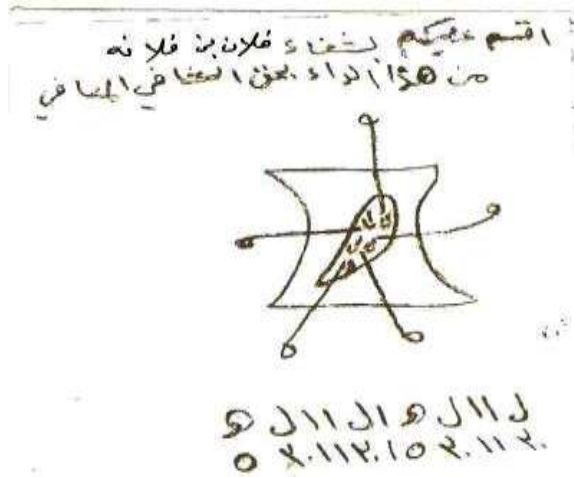 اقسم عليكم بشفاء فلان بن فلانه
من هذا الداء بحق الشافي المعافي
ل ١١ ل ه ال ١١ ل ه
٣٠١١٣٠١٥٣٠١١٣٠ ه